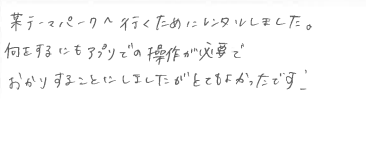 某テーマパークへ行くためにレンタルしました。
何をするにもアプリでの操作が必要で
おかりすることにしましたがとてもよかったです!